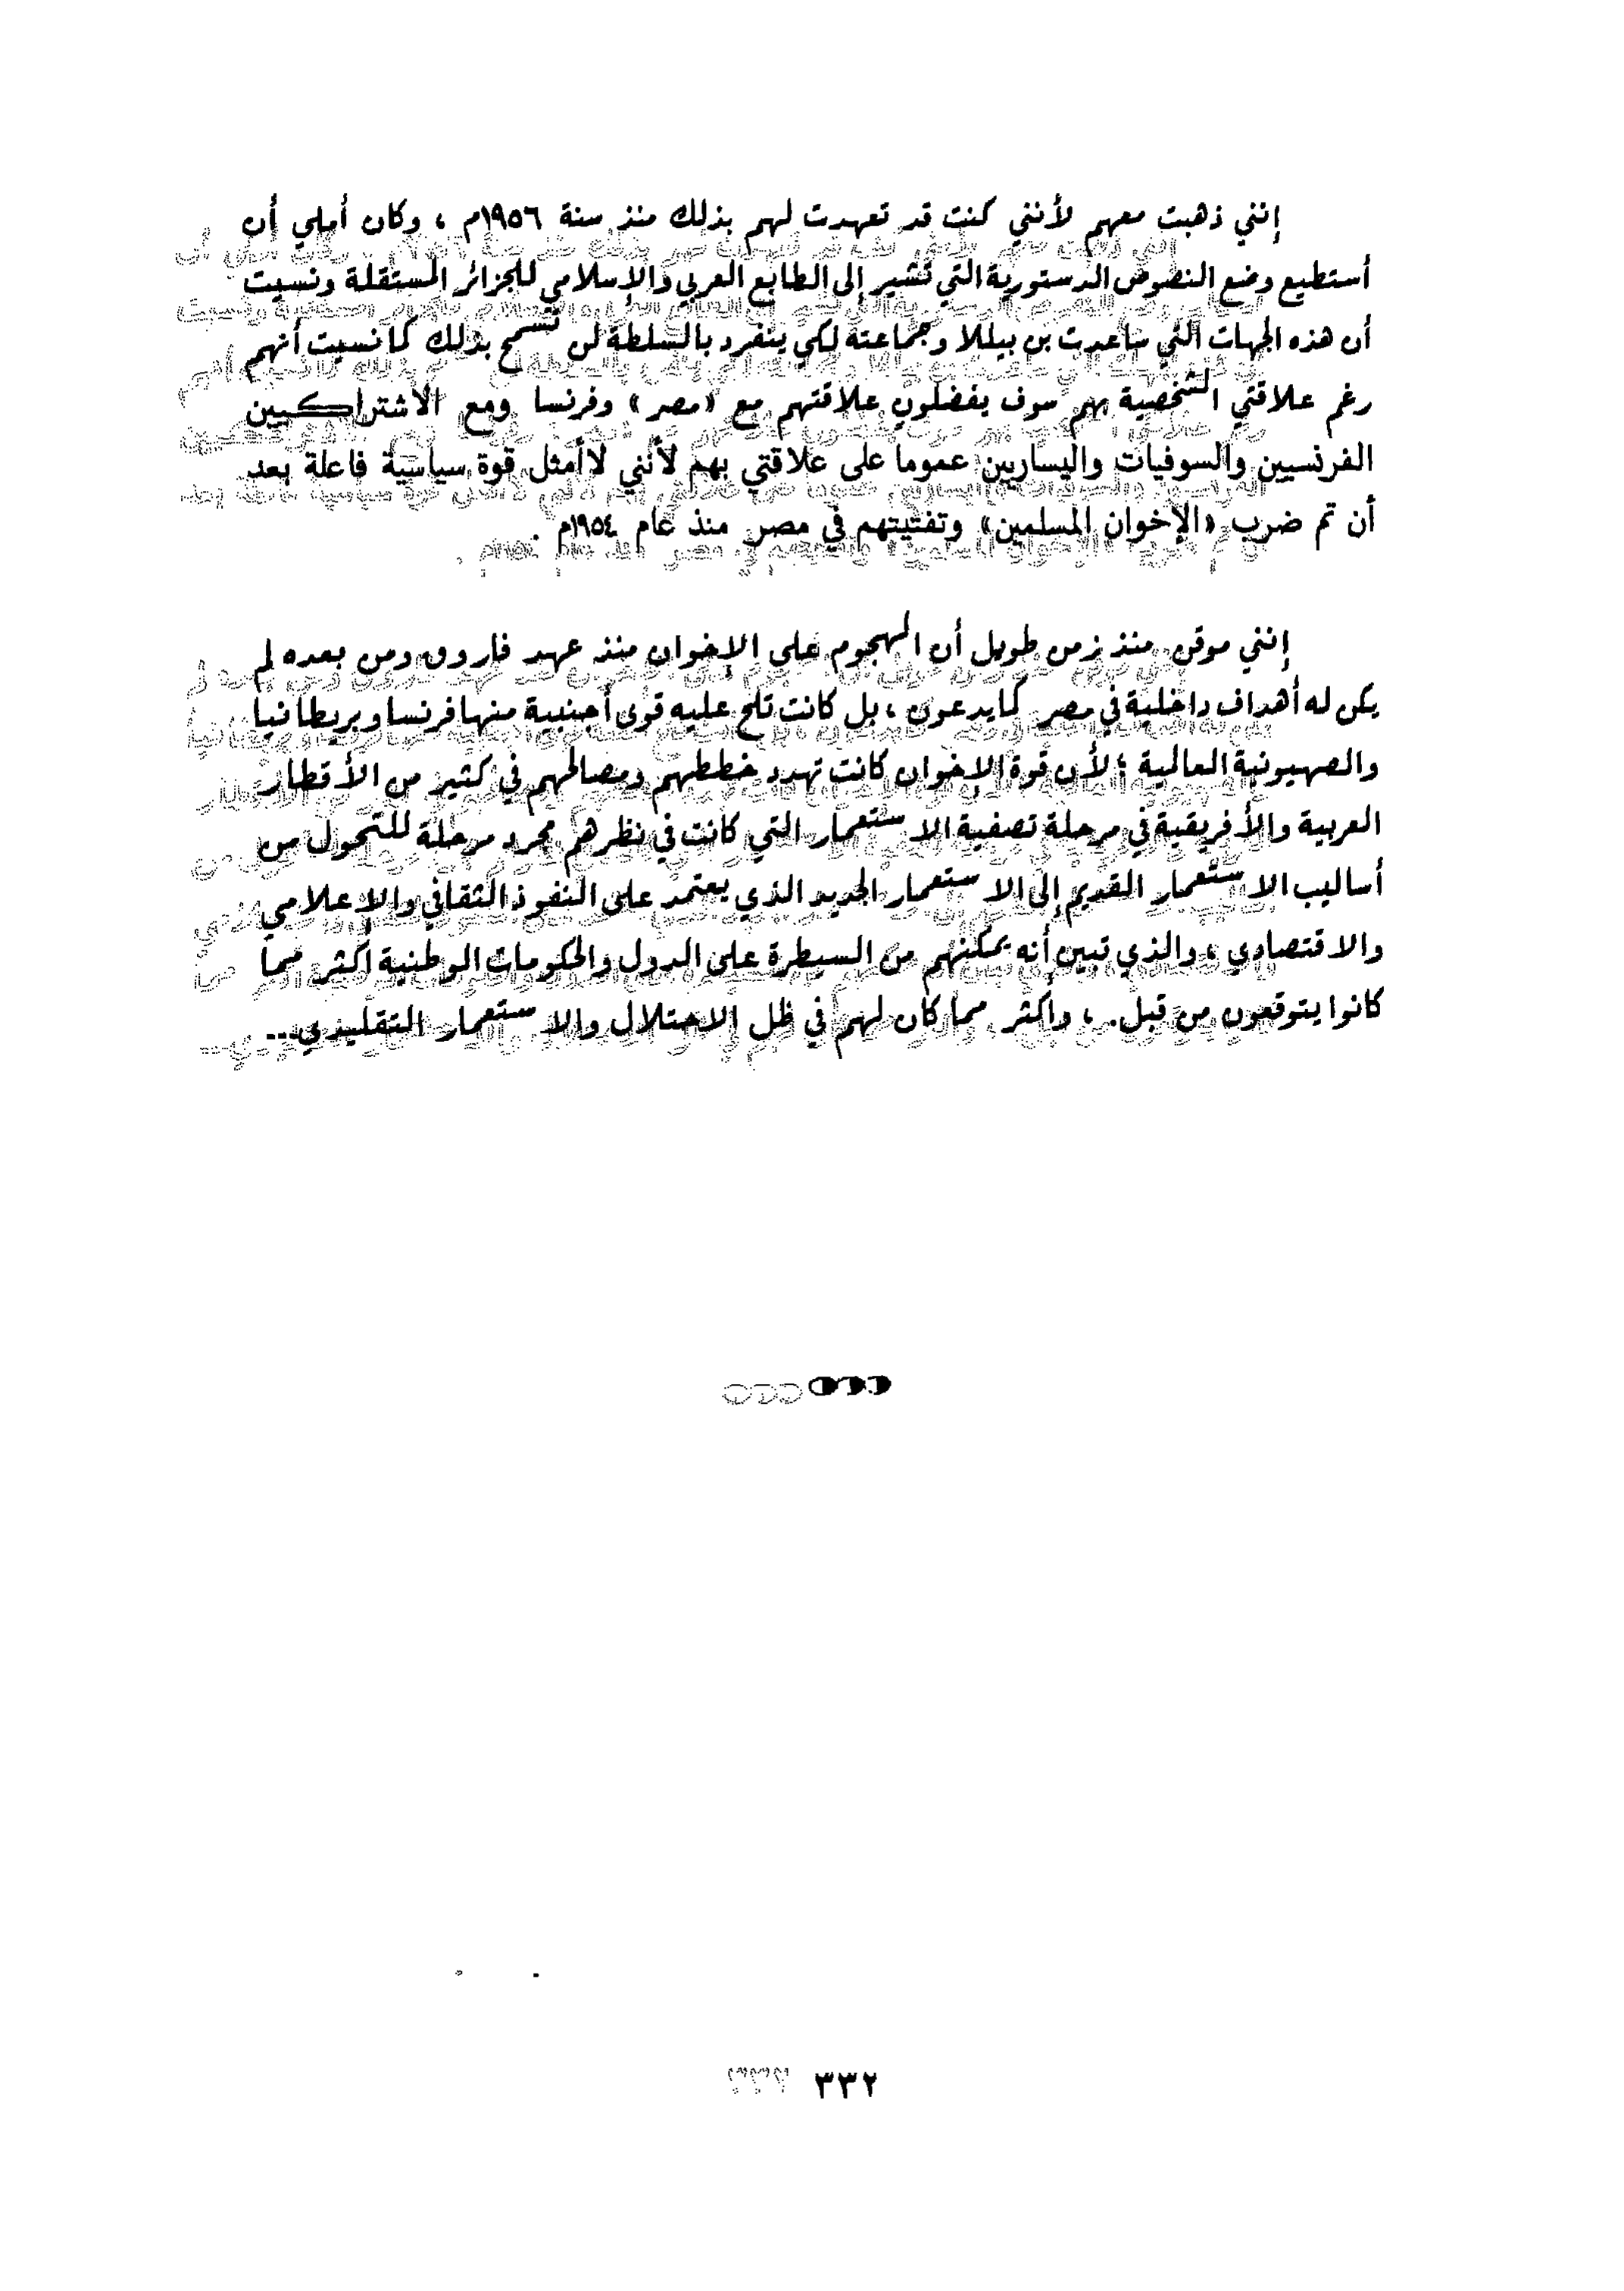 إنني ذهبت معهم لأنني كنت قد تعهدت لهم بذلك منذ سنة ١٩٥٦م ، وكان أملي أن
أستطيع وضع النصوص الدستورية التي تشير إلى الطابع العربي والإسلامي للجزائر المستقلة ونسيت
أن هذه الجهات التي ساعدت بن بيللا وجماعته لكي ينفرد بالسلطة لن تسمح بذلك كما نسيت أنهم
رغم علاقتي الشخصية بهم سوف يفضلون علاقتهم مع «مصر» وفرنسا ومع الاشتراكيين
الفرنسيين والسوفيات واليساريين عموما على علاقتي بهم لأنني لا أمثل قوة سياسية فاعلة بعد
أن تم ضرب «الإخوان المسلمين» وتفتيتهم في مصر منذ عام ١٩٥٤م .
إنني موقن منذ زمن طويل أن الهجوم على الإخوان منذ عهد فاروق ومن بعده لم
يكن له أهداف داخلية في مصر كما يدعون ، بل كانت تلح عليه قوى أجنبية منها فرنسا وبريطانيا
والصهيونية العالمية ؛ لأن قوة الإخوان كانت تهدد خططهم ومصالحهم في كثير من الأقطار
العربية والأفريقية في مرحلة تصفية الاستعمار التي كانت في نظرهم مجرد مرحلة للتحول من
أساليب الاستعمار القديم إلى الاستعمار الجديد الذي يعتمد على النفوذ الثقافي والإعلامي
والاقتصادي ، والذي تبين أنه يمكنهم من السيطرة على الدول والحكومات الوطنية أكثر مما
كانوا يتوقعون من قبل. ، وأكثر مما كان لهم في ظل الاحتلال والاستعمار التقليدي...
٣٣٢